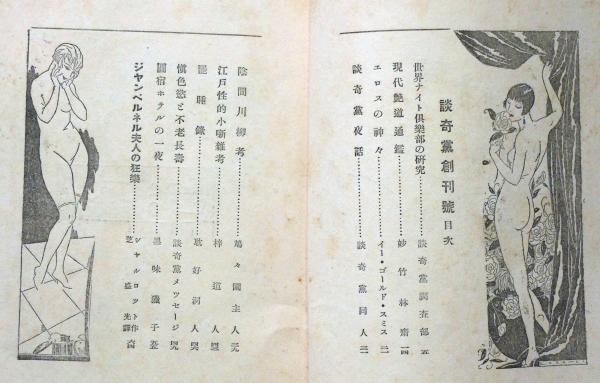 談奇黨創刊號目次
世界ナイト倶樂部の研究…………談奇黨調査部
現代艶道通鑑…………妙竹林齋
エロスの神々…………イー・ゴールド・スミス
談奇黨夜話…………談奇黨同人
陰間川柳考…………鳩々園主人
江戸性的小噺雜考…………梓道人
羅睡錄…………耽好洞人
愼色慾と不老長壽…………談奇黨メツセージ
圓宿ホテルの一夜…………墨味瓢子
ジャンベルネル夫人の狂樂…………シャルロット作 芝盛光譯